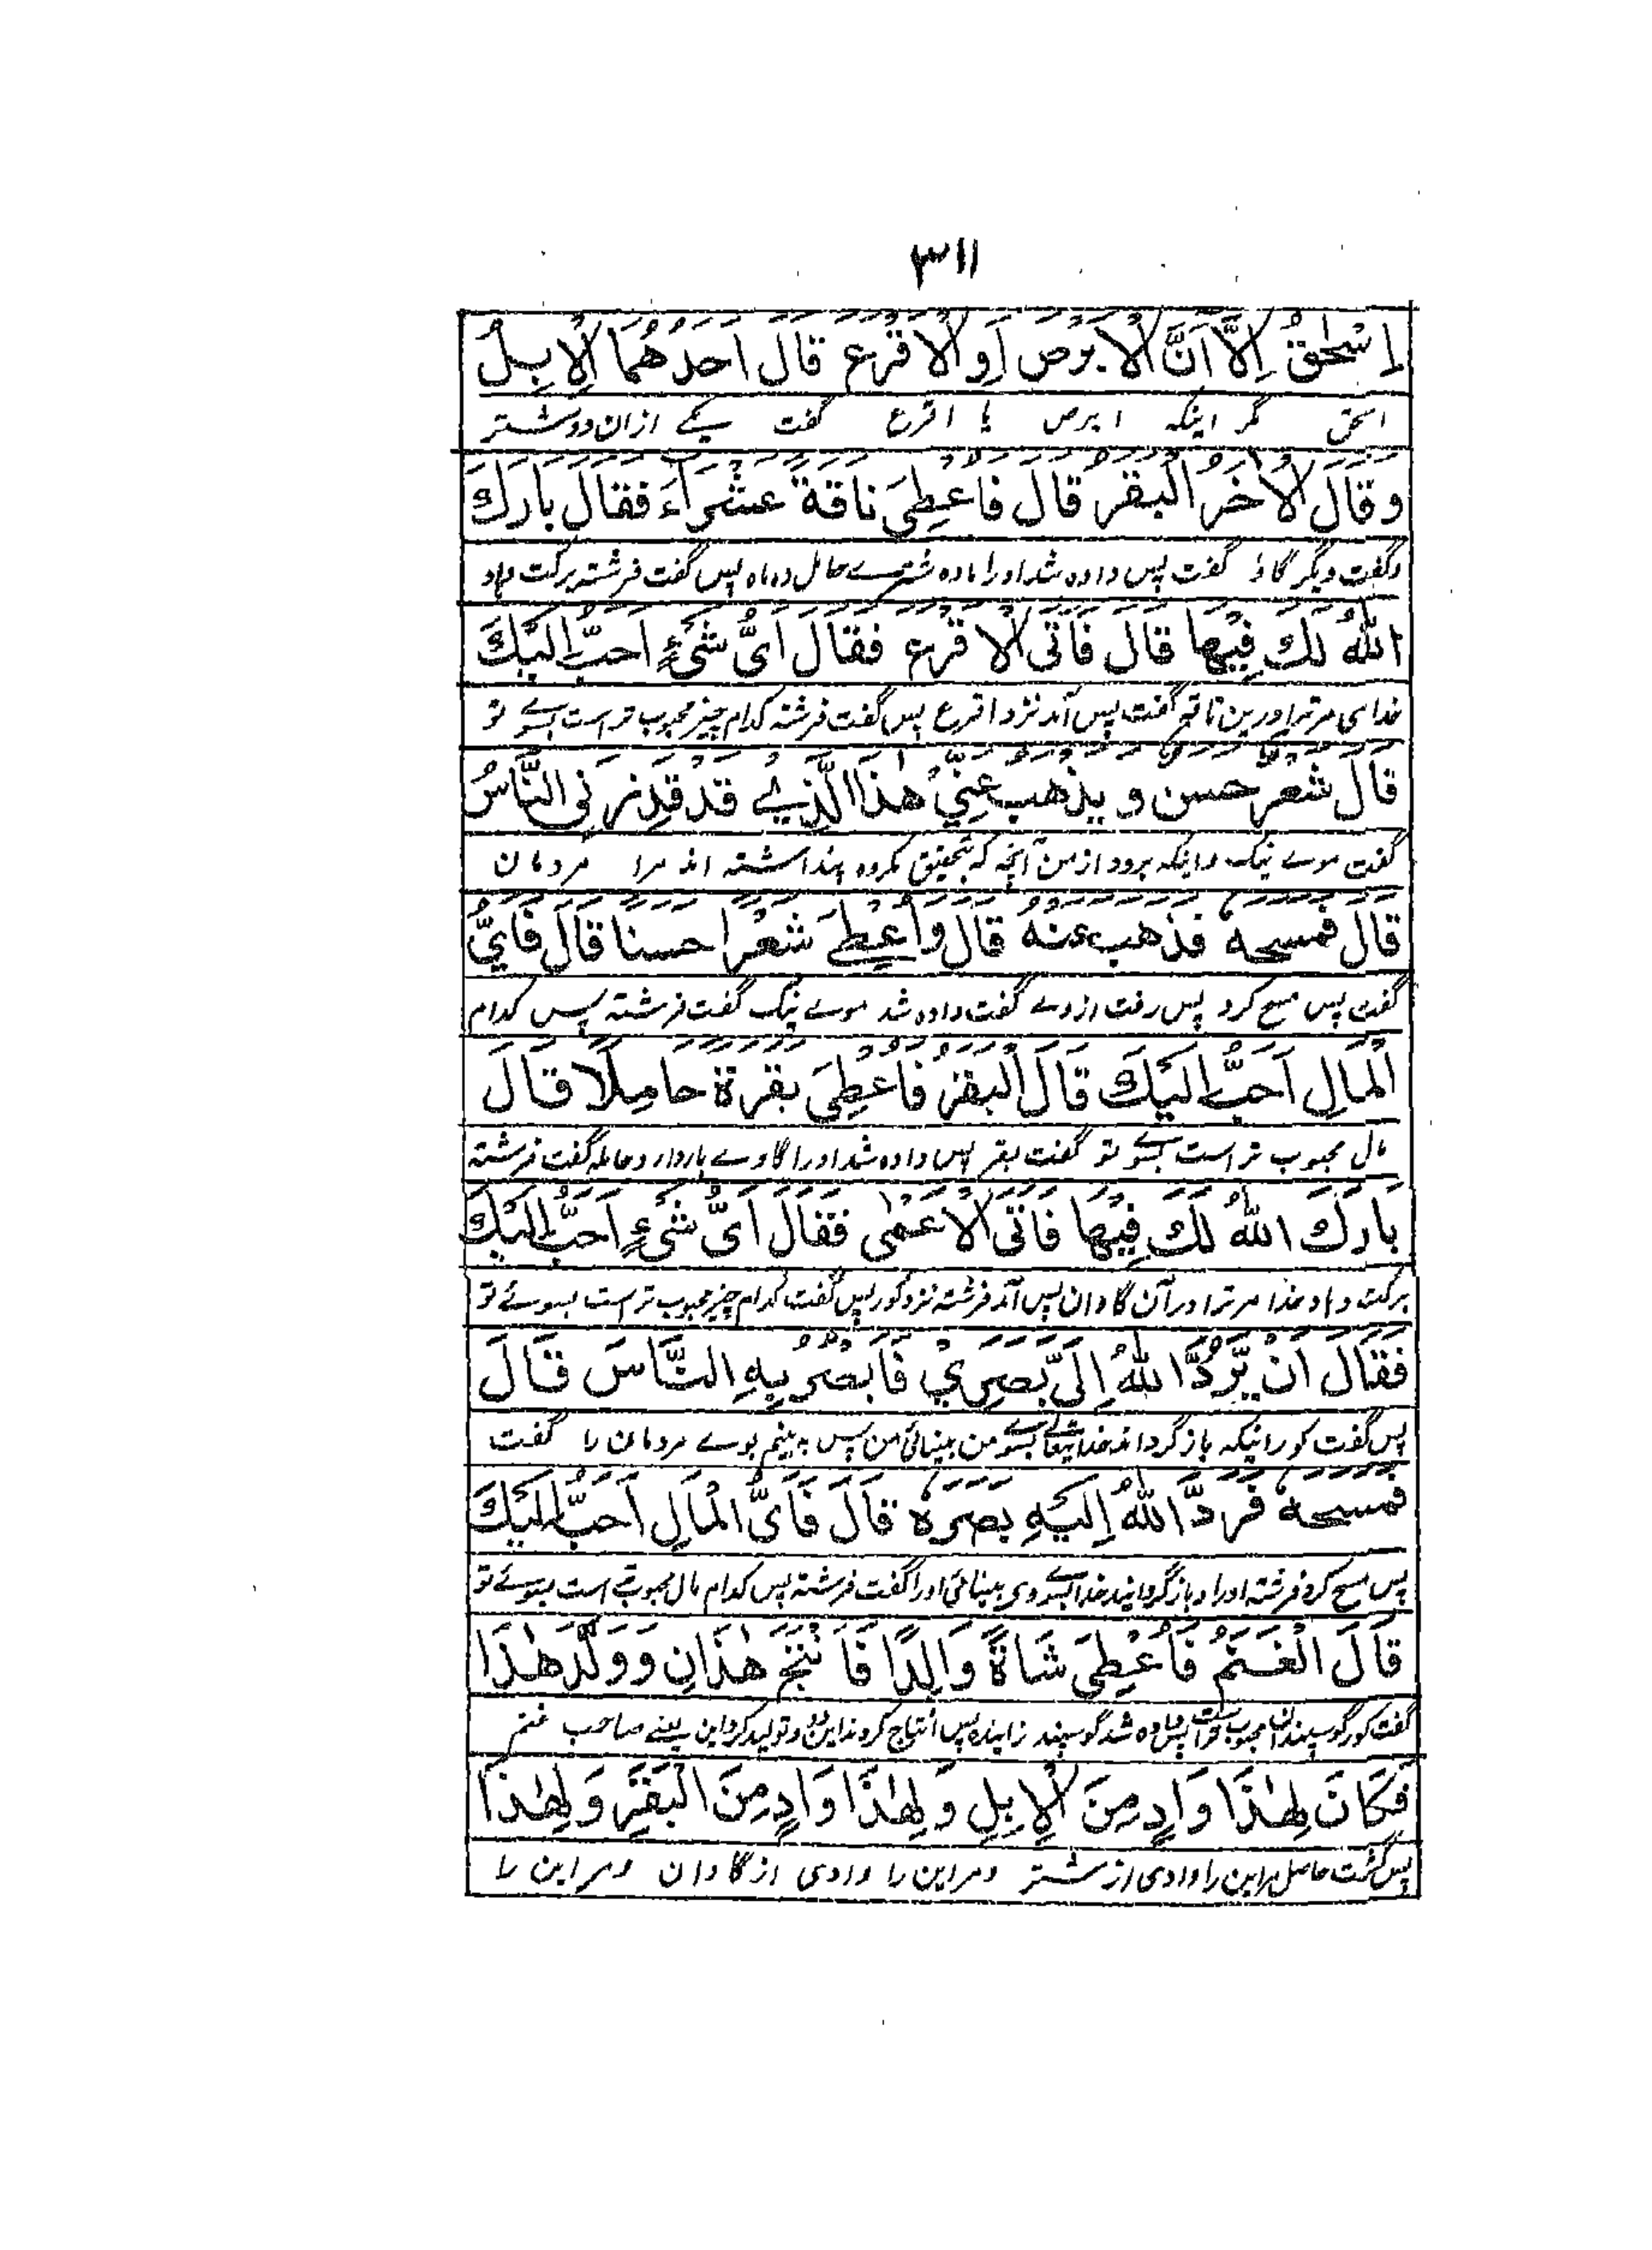 ٣١١
اِسْحٰقُ اِلَّا اَنَّ الْاَبْرَصَ اَوِ الْاَقْرَعَ قَالَ اَحَدُهُمَا الْاِبِلُ
اسحق مگر اینکه ابرص یا اقرع گفت یکے ازان دو شتر
وَقَالَ الْاٰخَرُ الْبَقَرُ قَالَ فَاُعْطِیَ نَاقَةً عُشَرَآءَ فَقَالَ بَارَكَ
وگفت دیگر گاؤ گفت پس داده شد اورا ماده شترے حامل ده ماه پس گفت فرشته برکت دهاد
اللّٰهُ لَكَ فِیْهَا قَالَ فَاَتَی الْاَقْرَعَ فَقَالَ اَیُّ شَیْءٍ اَحَبُّ اِلَیْكَ
خدای مر ترا درین ناقه گفت پس آمد نزد اقرع پس گفت فرشته کدام چیز محبوب تر است بسوے تو
قَالَ شَعْرٌ حَسَنٌ وَ یَذْهَبَ عَنِّیْ هٰذَا الَّذِیْ قَدْ قَذِرَنِی النَّاسُ
گفت موے نیک واینکه برود از من آنچه که بتحقیق مکروه پنداشته اند مرا مردمان
قَالَ فَمَسَحَهٗ فَذَهَبَ عَنْهُ قَالَ وَاُعْطِیَ شَعْرًا حَسَنًا قَالَ فَاَیُّ
گفت پس مسح کرد پس رفت ازوے گفت داده شد موے نیک گفت فرشته پس کدام
الْمَالِ اَحَبُّ اِلَیْكَ قَالَ الْبَقَرُ فَاُعْطِیَ بَقَرَةً حَامِلًا قَالَ
مال محبوب تر است بسوے تو گفت بقر پس داده شد اورا گاوے باردار وحامله گفت فرشته
بَارَكَ اللّٰهُ لَكَ فِیْهَا فَاَتَی الْاَعْمٰی فَقَالَ اَیُّ شَیْءٍ اَحَبُّ اِلَیْكَ
برکت دهاد خدا مر ترا درآن گاوان پس آمد فرشته نزد کور پس گفت کدام چیز محبوب تر است بسوئے تو
فَقَالَ اَنْ یَّرُدَّ اللّٰهُ اِلَیَّ بَصَرِیْ فَاُبْصِرُ بِهِ النَّاسَ قَالَ
پس گفت کور اینکه باز گرداند خدا یتعالے بسوے من بینائی من پس به بینم بوے مردمان را گفت
فَمَسَحَهٗ فَرَدَّ اللّٰهُ اِلَیْهِ بَصَرَهٗ قَالَ فَاَیُّ الْمَالِ اَحَبُّ اِلَیْكَ
پس مسح کرد فرشته اورا و باز گردانید خدا بسوے وی بینائی اورا گفت فرشته پس کدام مال محبوب تر است بسوئے تو
قَالَ الْغَنَمُ فَاُعْطِیَ شَاةً وَالِدًا فَاَنْتَجَ هٰذَانِ وَوَلَّدَ هٰذَا
گفت کور گوسپندان محبوب تر است پس داده شد گوسپند زاینده پس انتاج کردند این دو وتولید کرد این یعنے صاحب غنم
فَكَانَ لِهٰذَا وَادٍ مِنَ الْاِبِلِ وَ لِهٰذَا وَادٍ مِنَ الْبَقَرِ وَ لِهٰذَا
پس گشت حاصل مر این را وادی از شتر ومر این را وادی از گاوان ومر این را